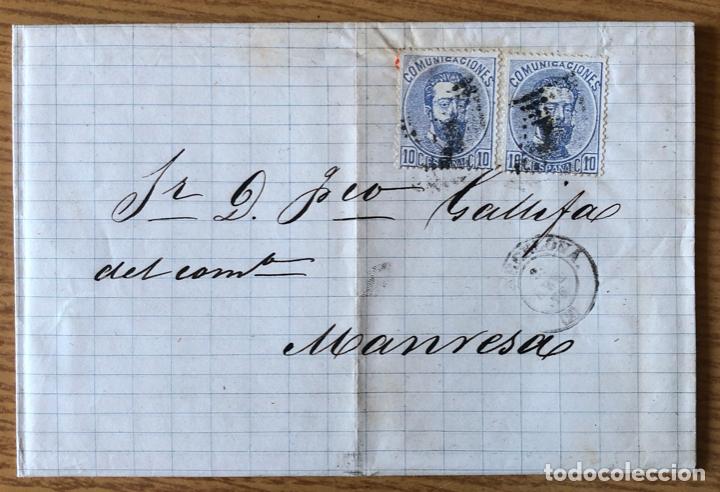 COMUNICACIONES
10 C. ESPAÑA C. 10
COMUNICACIONES
10 C. ESPAÑA C. 10
Sr D. Fco Gallifa
del como
Manresa
todocoleccion